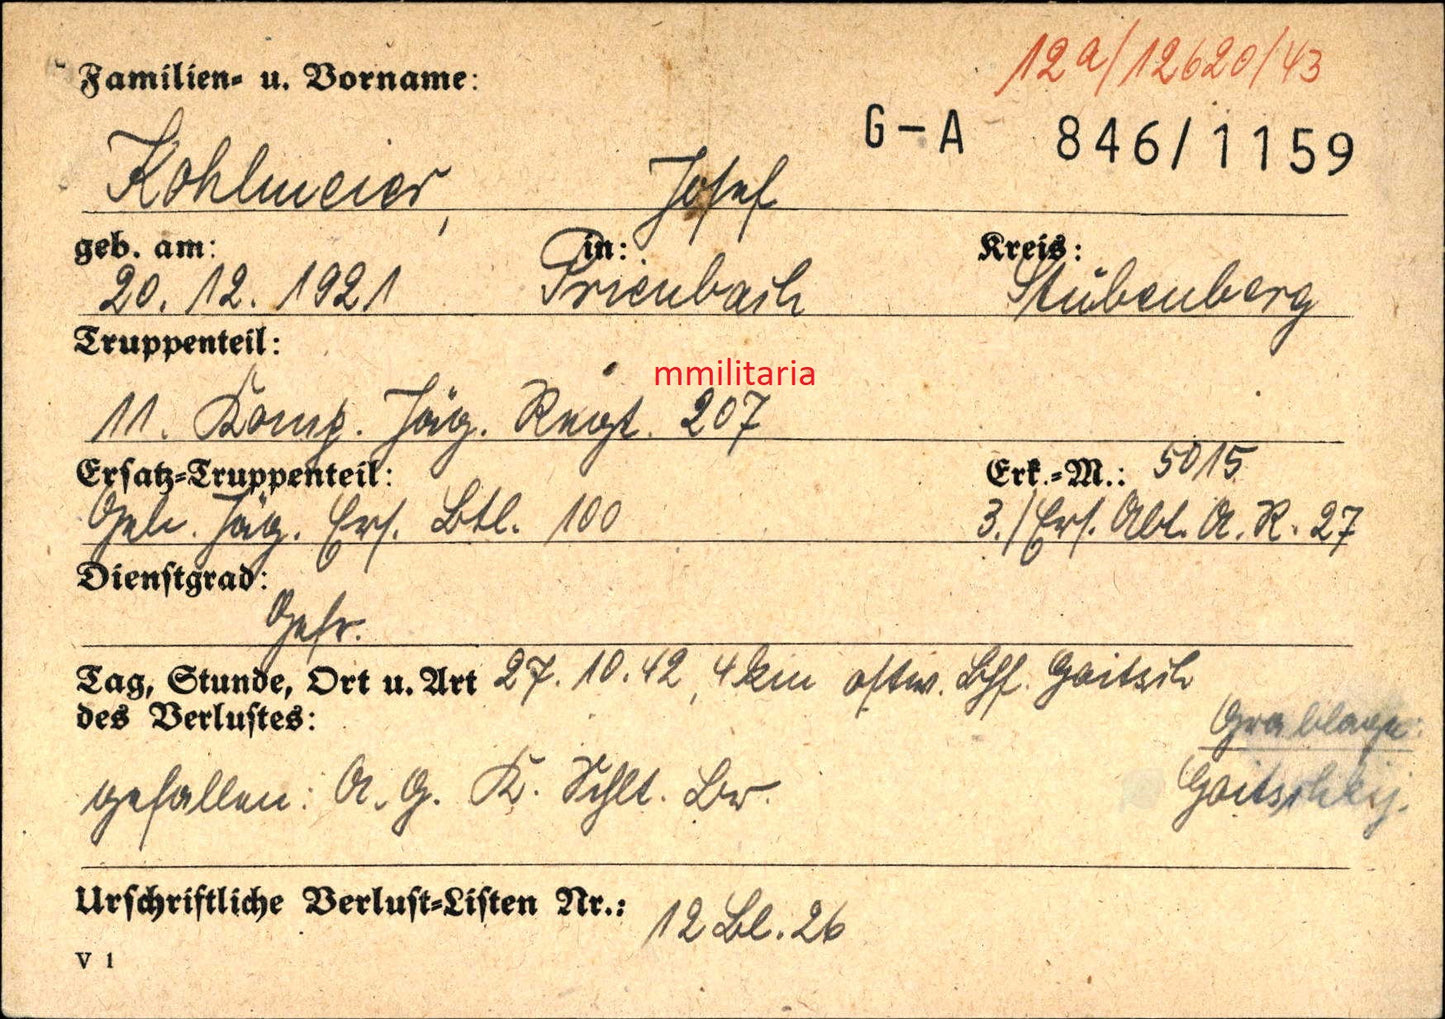 12a/12620/43
Familien- u. Vorname:
G-A 846/1159
Kohlmeier, Josef
geb. am: in: Kreis:
20. 12. 1921 Prienbach Stubenberg
Truppenteil:
mmilitaria
11. Komp. Jäg. Regt. 207
Ersatz-Truppenteil: Erk.-M.: 5015
Geb. Jäg. Ers. Btl. 100 3./Ers. Abt. A. R. 27
Dienstgrad:
Gefr.
Tag, Stunde, Ort u. Art 27. 10. 42, 4 km ostw. Bhf. Goitzch
des Verlustes:
Grablage:
gefallen: A. G. K. Schlt. Br. Goitschkij.
Urschriftliche Verlust-Listen Nr.: 12 Bl. 26
V 1